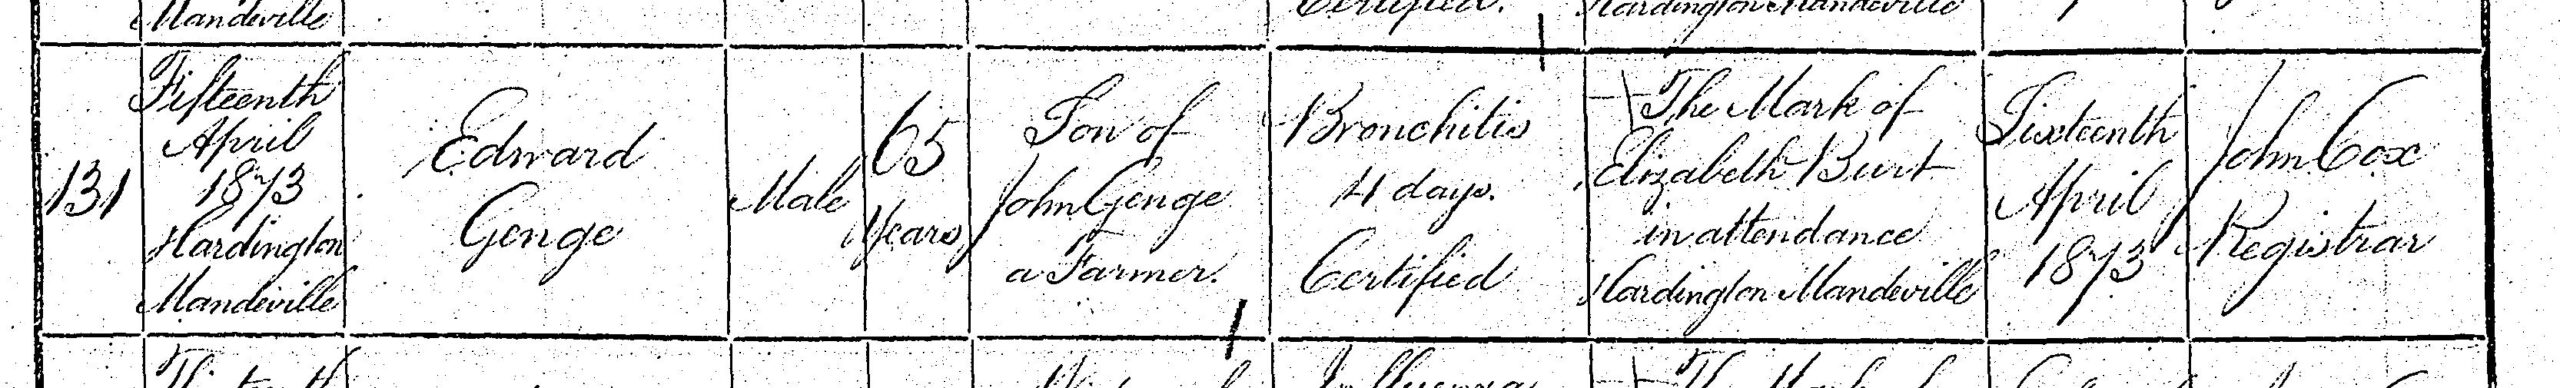 Mandeville
Certified.
Hardington Mandeville
131
Fifteenth
April
1873
Hardington
Mandeville
Edward
Genge
Male
65
Years
Son of
John Genge
a Farmer.
Bronchitis
4 days.
Certified
The Mark of
Elizabeth Burt
in attendance
Hardington Mandeville
Sixteenth
April
1873
John Cox
Registrar
Influenza
The Mark of